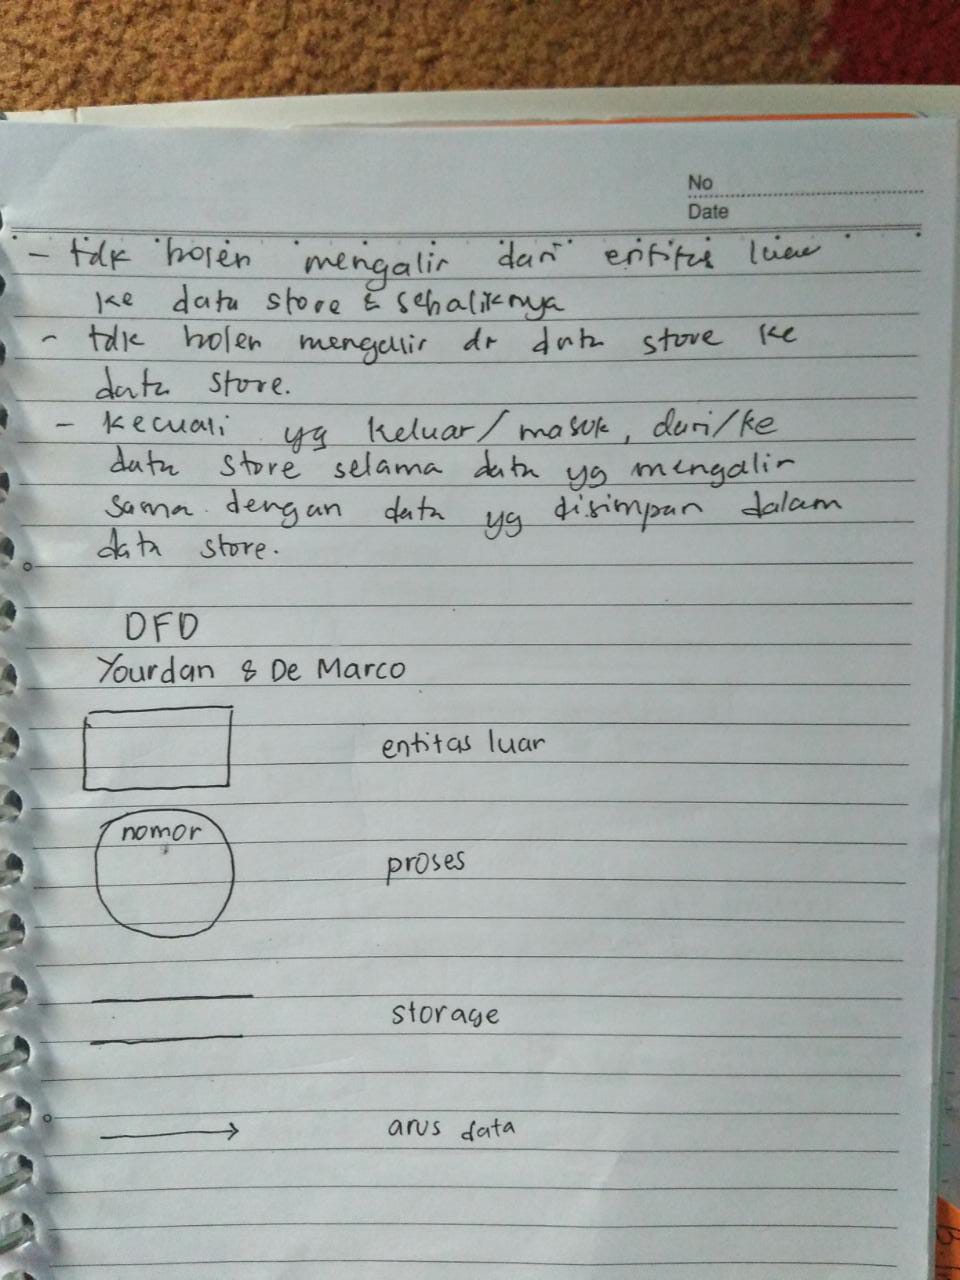 No
Date
- tdk boleh mengalir dari entitas luar
ke data store & sebaliknya
- tdk boleh mengalir dr data store ke
data store.
- kecuali yg keluar/masuk, dari/ke
data store selama data yg mengalir
sama dengan data yg disimpan dalam
data store.
DFD
Yourdan & De Marco
entitas luar
nomor
proses
storage
arus data